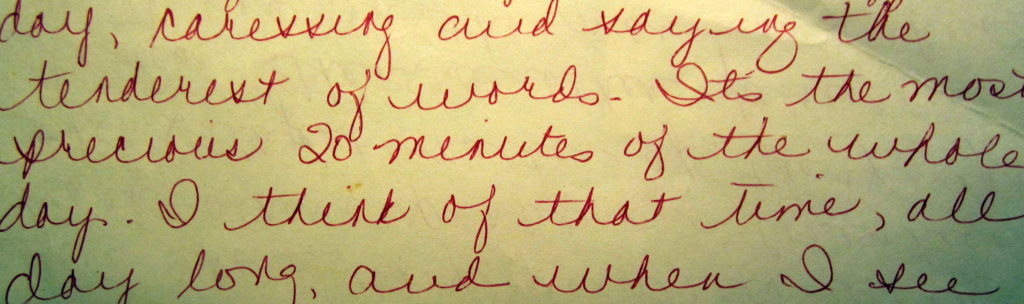 day, caressing and saying the
tenderest of words. It's the most
precious 20 minutes of the whole
day. I think of that time, all
day long, and when I see